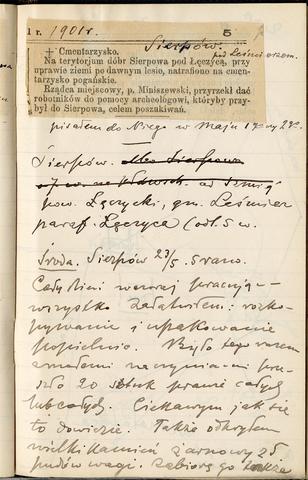 1 r. 1901 r. 5
Sierpów.
pod Leśmierzem.
† Cmentarzysko.
Na terytorjum dóbr Sierpowa pod Łęczycą, przy
uprawie ziemi po dawnym lesie, natrafiono na cmen-
tarzysko pogańskie.
Rządca miejscowy, p. Miniszewski, przyrzekł dać
robotników do pomocy archeologowi, któryby przy-
był do Sierpowa, celem poszukiwań.
pisałem do Niego w Maju
Sierpów.
pow. Łęczycki, gm. Leśmierz
paraf. Łęczyca (odl. 5 w.
Środa. Sierpów 23/5. 5 rano.
Cały dzień wczoraj pracując –
wszystko załatwiłem: rozko-
pywanie i upakowanie
popielnic. Było tego razem
z naczyniami prze-
szło 20 sztuk prawie całych
lub całych. Ciekawym jak się
to dowiezie. Także odkryłem
wielki kamień żarnowy 25
pudów wagi. Zabiorę go także